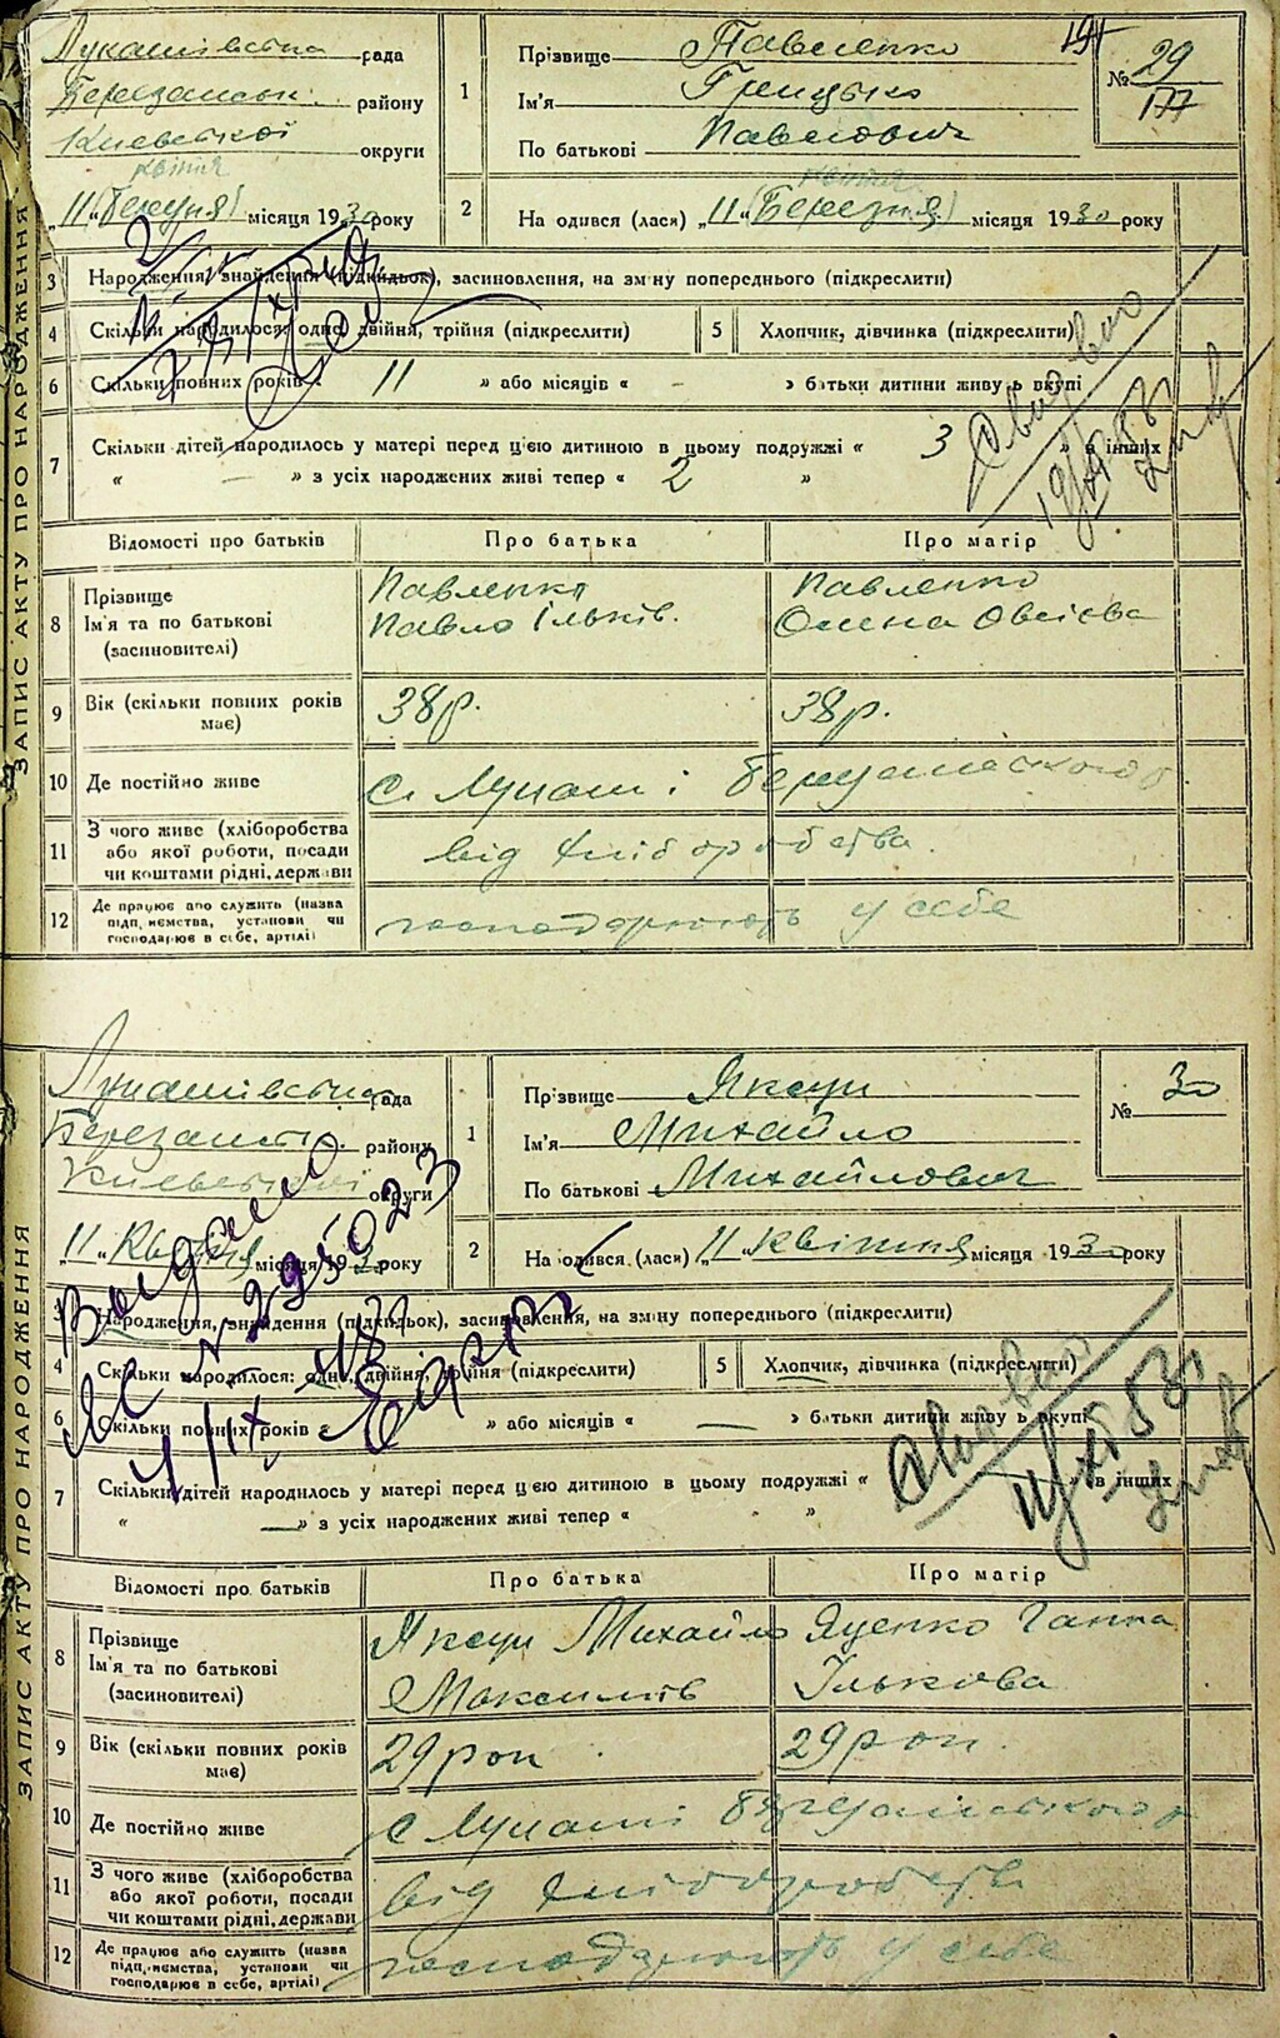 ЗАПИС АКТУ ПРО НАРОДЖЕННЯ
Лукашівська рада
Березанськ. району
Киевської округи
квітня
„11" (Березня) місяця 1930 року
1
Прізвище Павленко
Ім'я Грицько
По батькові Павлович
191
№ 29
177
2
квітня
На одився (лася) „11" (Березня) місяця 1930 року
3 Народження, знайдення (підкидьок), засиновлення, на зміну попереднього (підкреслити)
4 Скільки народилося: одно, двійня, трійня (підкреслити)
5 Хлопчик, дівчинка (підкреслити)
6 Скільки повних років « 11 » або місяців « - » батьки дитини живуть вкупі
7 Скільки дітей народилось у матері перед цією дитиною в цьому подружжі « 3 » в інших
« — » з усіх народжених живі тепер « 2 »
Відомості про батьків Про батька Про матір
8 Прізвище Ім'я та по батькові (засиновителі)
Павленко Павло Ільків.
Павленко Олена Овсієва
9 Вік (скільки повних років має) 38 р. 38 р.
10 Де постійно живе С. Лукаші Березанського р.
11 З чого живе (хліборобства або якої роботи, посади чи коштами рідні, держави від хліборобства.
12 Де працює або служить (назва підприємства, установи чи господарює в себе, артілі) господарюють у себе
ЗАПИС АКТУ ПРО НАРОДЖЕННЯ
Лукашівська рада
Березанськ. району
Киевської округи
„11" Квітня місяця 1930 року
1
Прізвище Яксун
Ім'я Михайло
По батькові Михайлович
№ 30
2 На одився (лася) „11" квітня місяця 1930 року
3 Народження, знайдення (підкидьок), засиновлення, на зміну попереднього (підкреслити)
4 Скільки народилося: одно, двійня, трійня (підкреслити)
5 Хлопчик, дівчинка (підкреслити)
6 Скільки повних років « » або місяців « — » батьки дитини живуть вкупі
7 Скільки дітей народилось у матері перед цією дитиною в цьому подружжі « » в інших
« — » з усіх народжених живі тепер « »
Відомості про батьків Про батька Про матір
8 Прізвище Ім'я та по батькові (засиновителі)
Яксун Михайло Максимів
Яценко Ганна Ількова
9 Вік (скільки повних років має) 29 рок 29 рок.
10 Де постійно живе с Лукаші Березанського р
11 З чого живе (хліборобства або якої роботи, посади чи коштами рідні, держави від хліборобства
12 Де працює або служить (назва підприємства, установи чи господарює в себе, артілі) господарюють у себе